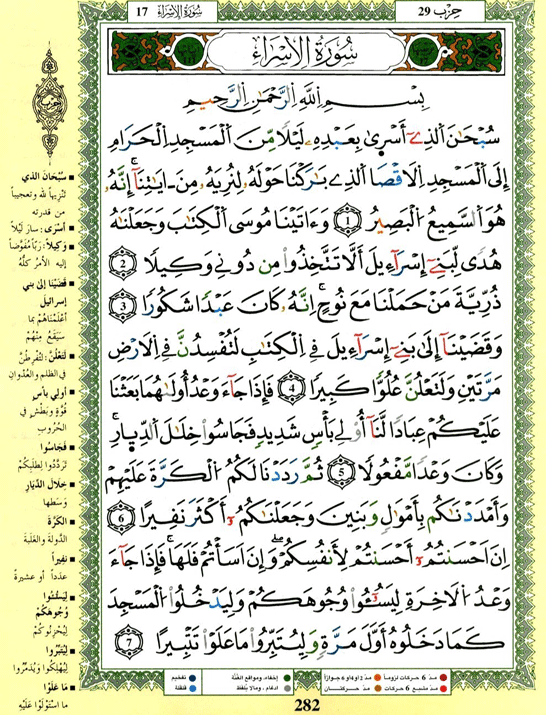 حِزْب 29
سُورَةُ الإِسْرَاءِ 17
سُورَةُ الْإِسْرَاءِ
بِسْمِ اِللَّهِ اِلرَّحْمَٰنِ اِلرَّحِيمِ
سُبْحَٰنَ اَلذِےٓ أَسْرَىٰ بِعَبْدِهِۦ لَيْلًا مِّنَ اَلْمَسْجِدِ اِلْحَرَامِ
إِلَى اَلْمَسْجِدِ اِلَاقْصَا اَلذِے بَٰرَكْنَا حَوْلَهُۥ لِنُرِيَهُۥ مِنَ ـ ايَٰتِنَآۖ إِنَّهُۥ
هُوَ اَلسَّمِيعُ اُلْبَصِيرُ 1 وَءَاتَيْنَا مُوسَى اَلْكِتَٰبَ وَجَعَلْنَٰهُ
هُدًى لِّبَنِےٓ إِسْرَآءِيلَ أَلَّا تَتَّخِذُواْ مِن دُونِے وَكِيلًا 2
ذُرِّيَّةَ مَنْ حَمَلْنَا مَعَ نُوحٍۖ اِنَّهُۥ كَانَ عَبْدًا شَكُورًا 3
وَقَضَيْنَآ إِلَىٰ بَنِےٓ إِسْرَآءِيلَ فِے اِلْكِتَٰبِ لَتُفْسِدُنَّ فِے اِلَارْضِ
مَرَّتَيْنِ وَلَتَعْلُنَّ عُلُوًّا كَبِيرًا 4 فَإِذَا جَآءَ وَعْدُ أُولَىٰهُمَا بَعَثْنَا
عَلَيْكُمْ عِبَادًا لَّنَآ أُوْلِے بَأْسٍ شَدِيدٍ فَجَاسُواْ خِلَٰلَ اَلدِّيَارِۖ
وَكَانَ وَعْدًا مَّفْعُولًا 5 ثُمَّ رَدَدْنَا لَكُمُ اُلْكَرَّةَ عَلَيْهِمْ
وَأَمْدَدْنَٰكُم بِأَمْوَٰلٍ وَبَنِينَ وَجَعَلْنَٰكُمُۥٓ أَكْثَرَ نَفِيرًا 6
اِنَ اَحْسَنتُمُۥٓ أَحْسَنتُمْ لِأَنفُسِكُمْۖ وَإِنَ اَسَأْتُمْ فَلَهَاۖ فَإِذَا جَآءَ
وَعْدُ اُلَاخِرَةِ لِيَسُۥٓـُٔواْ وُجُوهَكُمْ وَلِيَدْخُلُواْ اُلْمَسْجِدَ
كَمَا دَخَلُوهُ أَوَّلَ مَرَّةٍ وَلِيُتَبِّرُواْ مَا عَلَوْاْ تَتْبِيرًا 7
حزب
■ سُبْحَانَ الذي
تَنْزِيهاً لله وتعجيباً
من قدرته
■ أَسْرَى: سارَ لَيْلاً
■ وَكِيلاً: رَبّاً مُفَوَّضاً
إليه الأمرُ كلُّه
■ قَضَيْنَا إلى بَني
إسرائيلَ
أَعْلَمْنَاهُمْ بما
سَيَقَعُ مِنْهُمْ
■ لَتَعْلُنَّ: لَتُفْرِطُنَّ
في الظلمِ والعُدْوانِ
■ أولي بأسٍ
قُوَّةٍ وبَطْشٍ في
الحُروبِ
■ فَجَاسُوا
تَرَدَّدُوا لِطَلَبِكُمْ
■ خِلَالَ الدِّيَارِ
وَسَطها
■ الكَرَّةَ
الدَّوْلَةَ والغَلَبَةَ
■ نَفِيراً
عدداً أو عشيرةً
■ لِيَسُوءُوا
وُجُوهَكُمْ
لِيُحْزِنُوكُمْ
■ لِيُتَبِّرُوا
لِيُهْلِكُوا ويُدَمِّرُوا
■ مَا عَلَوْا
ما اسْتَوْلَوْا عَلَيْهِ
مدّ 6 حركات لزوماً مدّ 2 أو 4 أو 6 جوازاً إخفاء، ومواقع الغُنَّة تفخيم
مدّ مشبع 6 حركات مدّ حركتان إدغام، وما لا يُلفَظ قلقلة
282